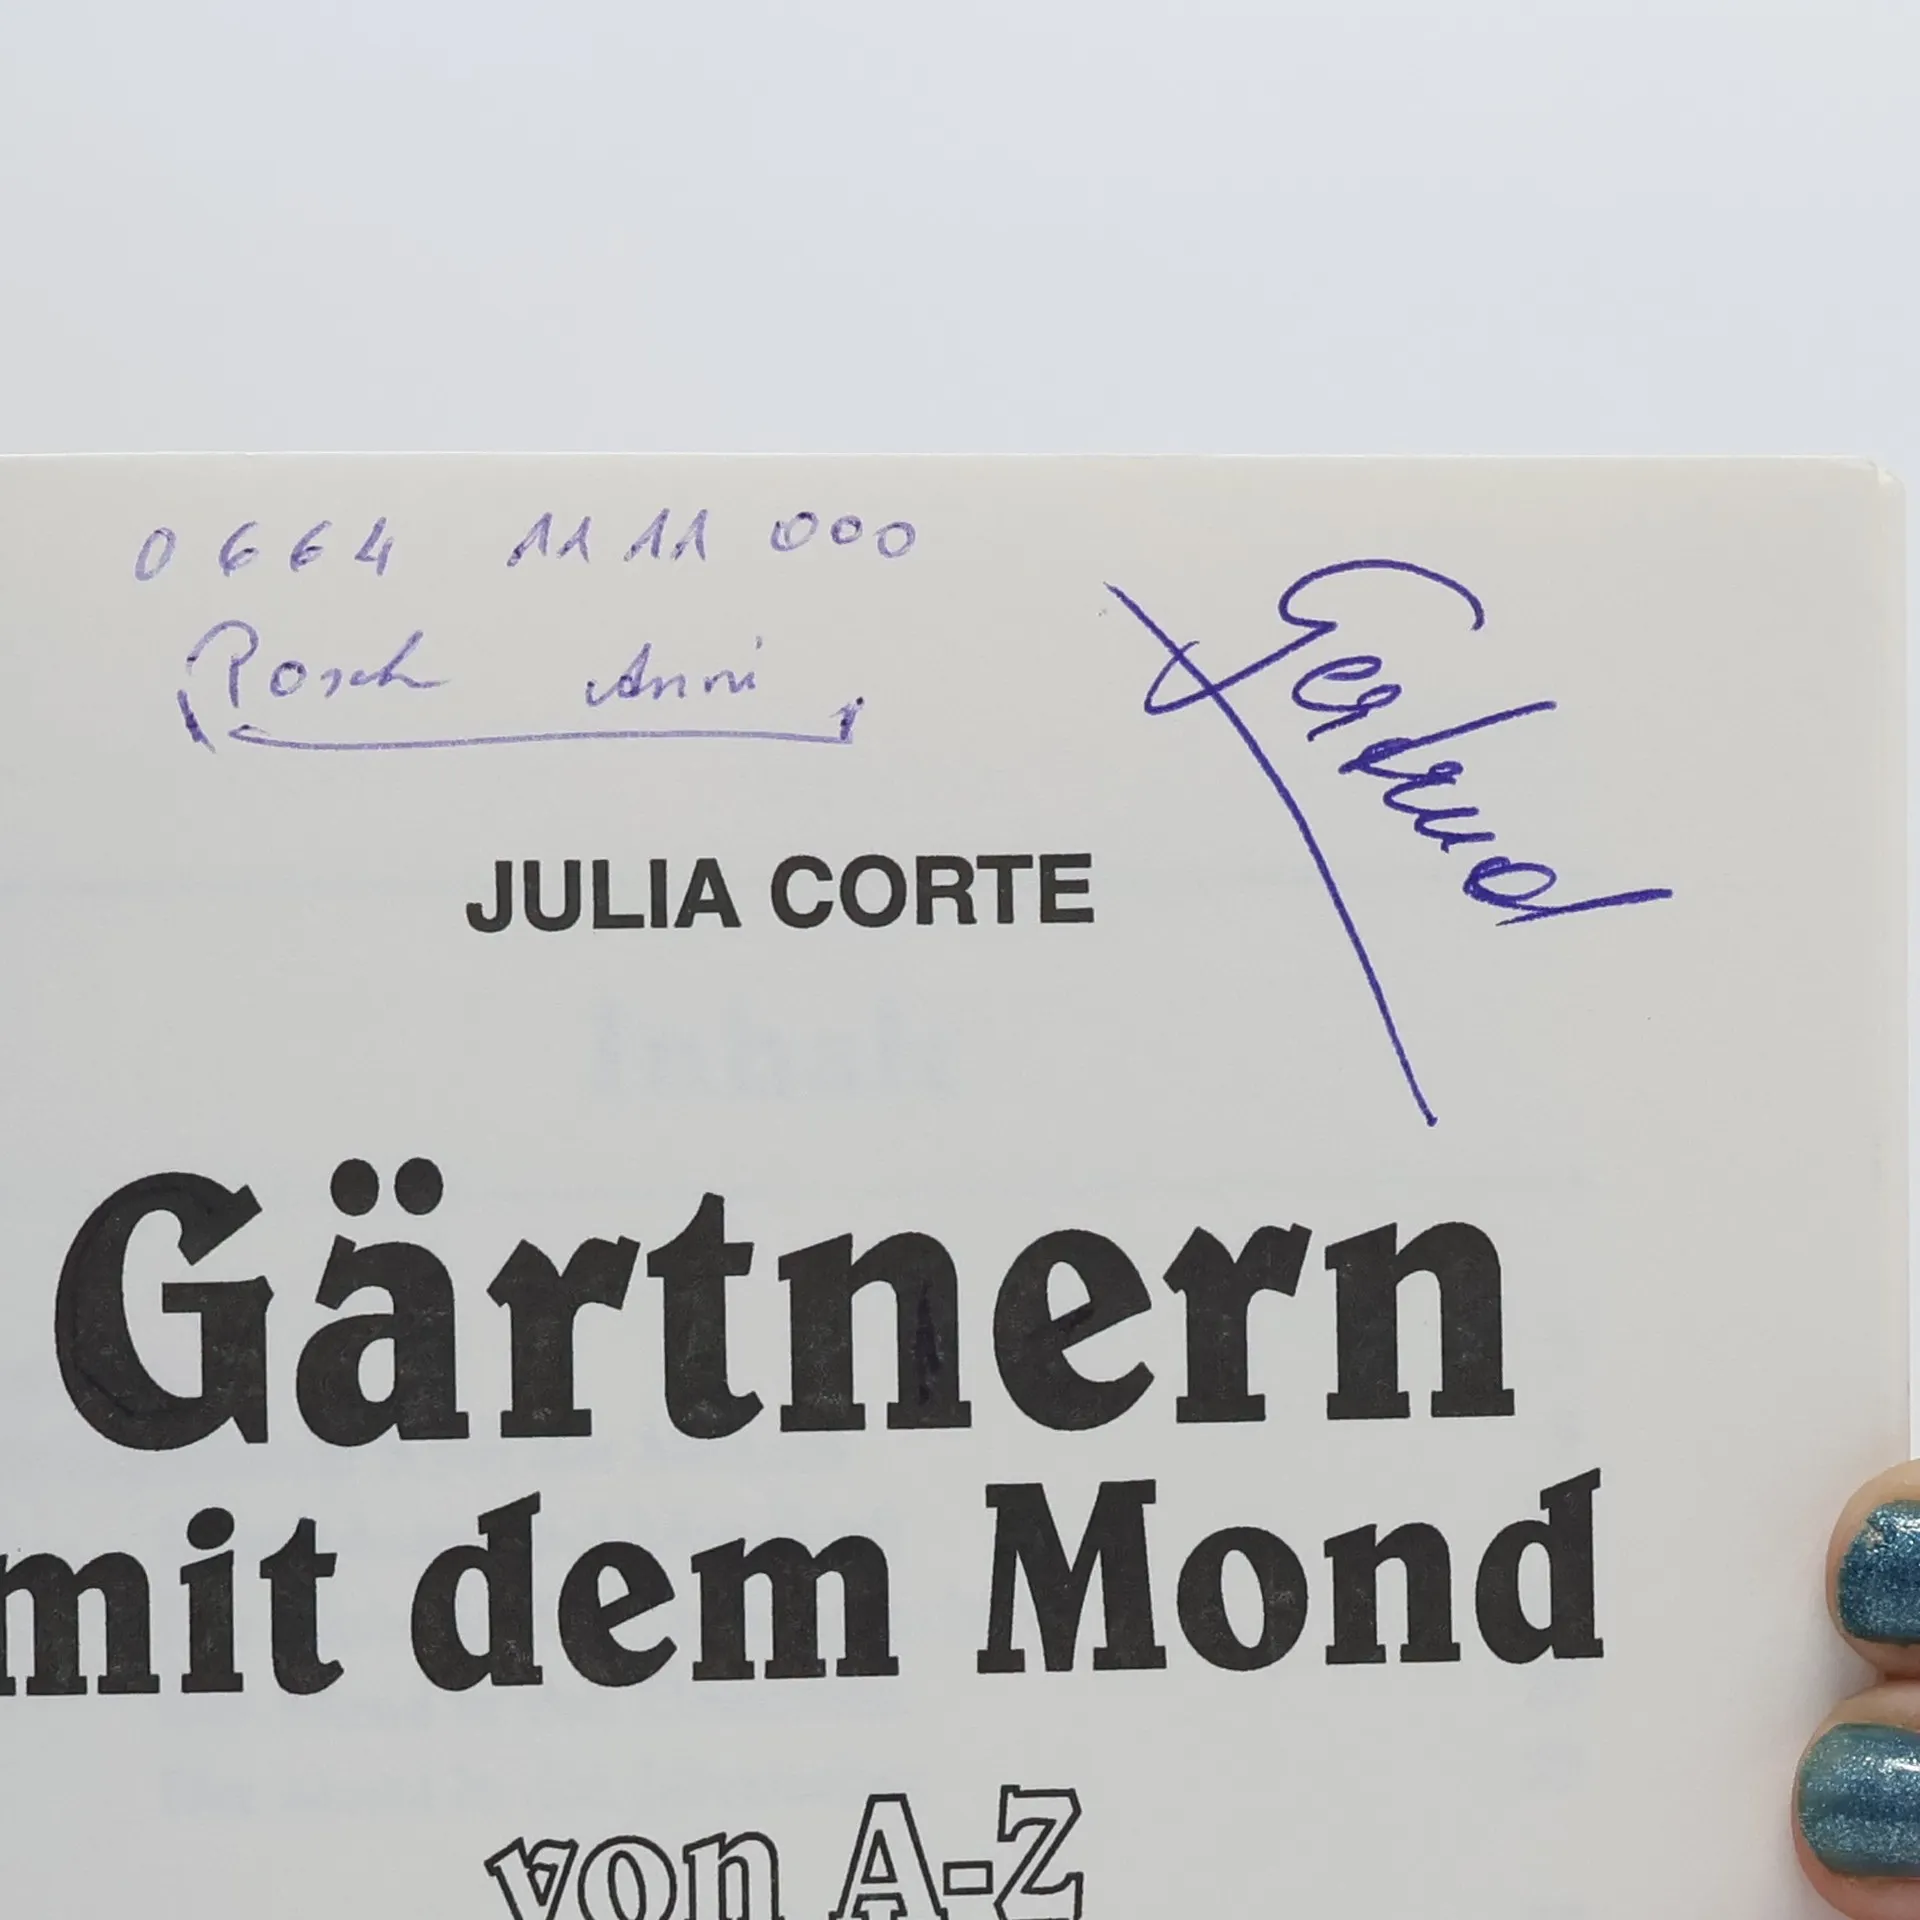 0664 1111 000
Posch Anni
Gertrud
JULIA CORTE
Gärtnern
mit dem Mond
von A-Z